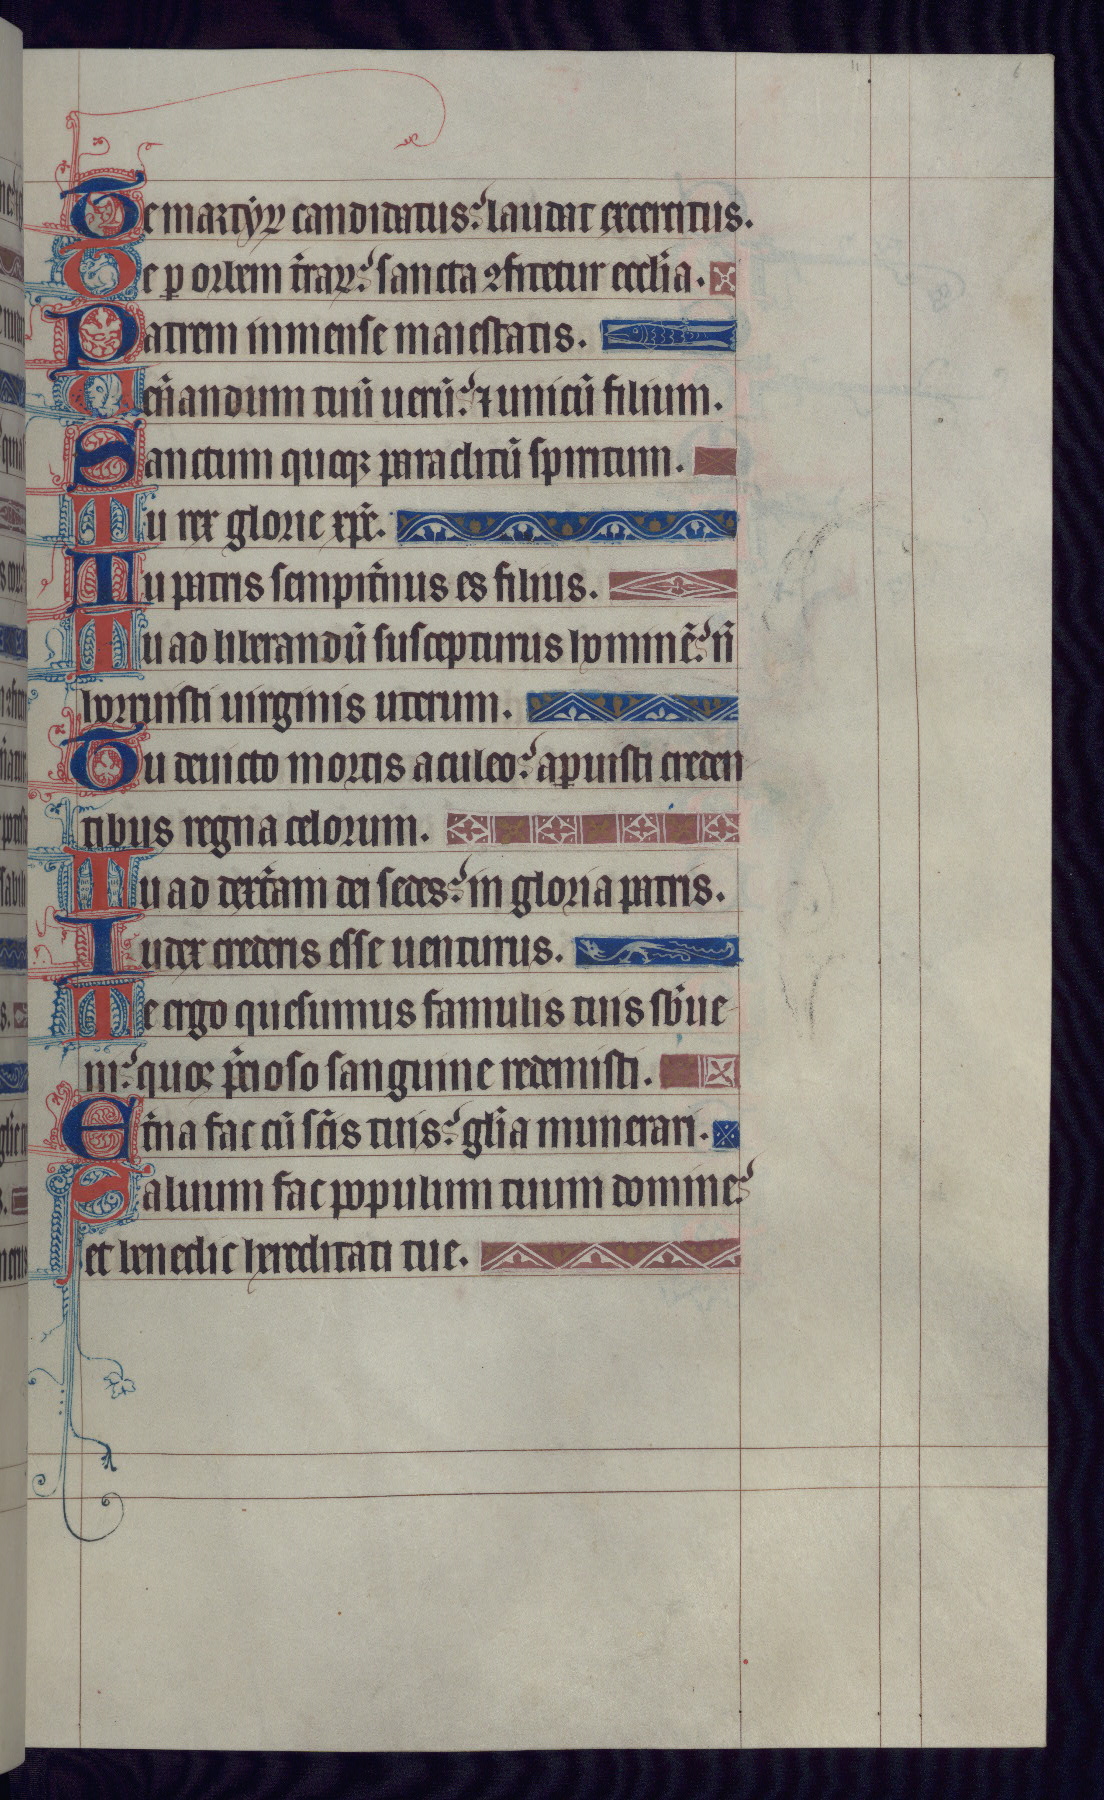 Te martyꝝ candidatus: laudat excercitus.
Te ꝑ orbem t̄raꝝ: sancta ꝯfitetur eccl̄ia.
Patrem inmense maiestatis.
Uen̄andum tuū uerū: ⁊ unicū filium.
Sanctum quoqꝫ paraclitū spiritum.
Tu rex glorie xp̄e.
Tu patris sempit̄nus es filius.
Tu ad liberandū suscepturus hominē: n̄
horruisti uirginis uterum.
Tu deuicto mortis aculeo: apuisti creden
tibus regna celorum.
Tu ad dext̄am dei sedes: in gloria patris.
Iudex crederis esse uenturus.
Te ergo quesumus famulis tuis sb̄ue
ni: quoꝝ p̄cioso sanguine redemisti.
Et̄na fac cū sc̄is tuis: gl̄ia munerari.
Saluum fac populum tuum domine:
et benedic hereditati tue.